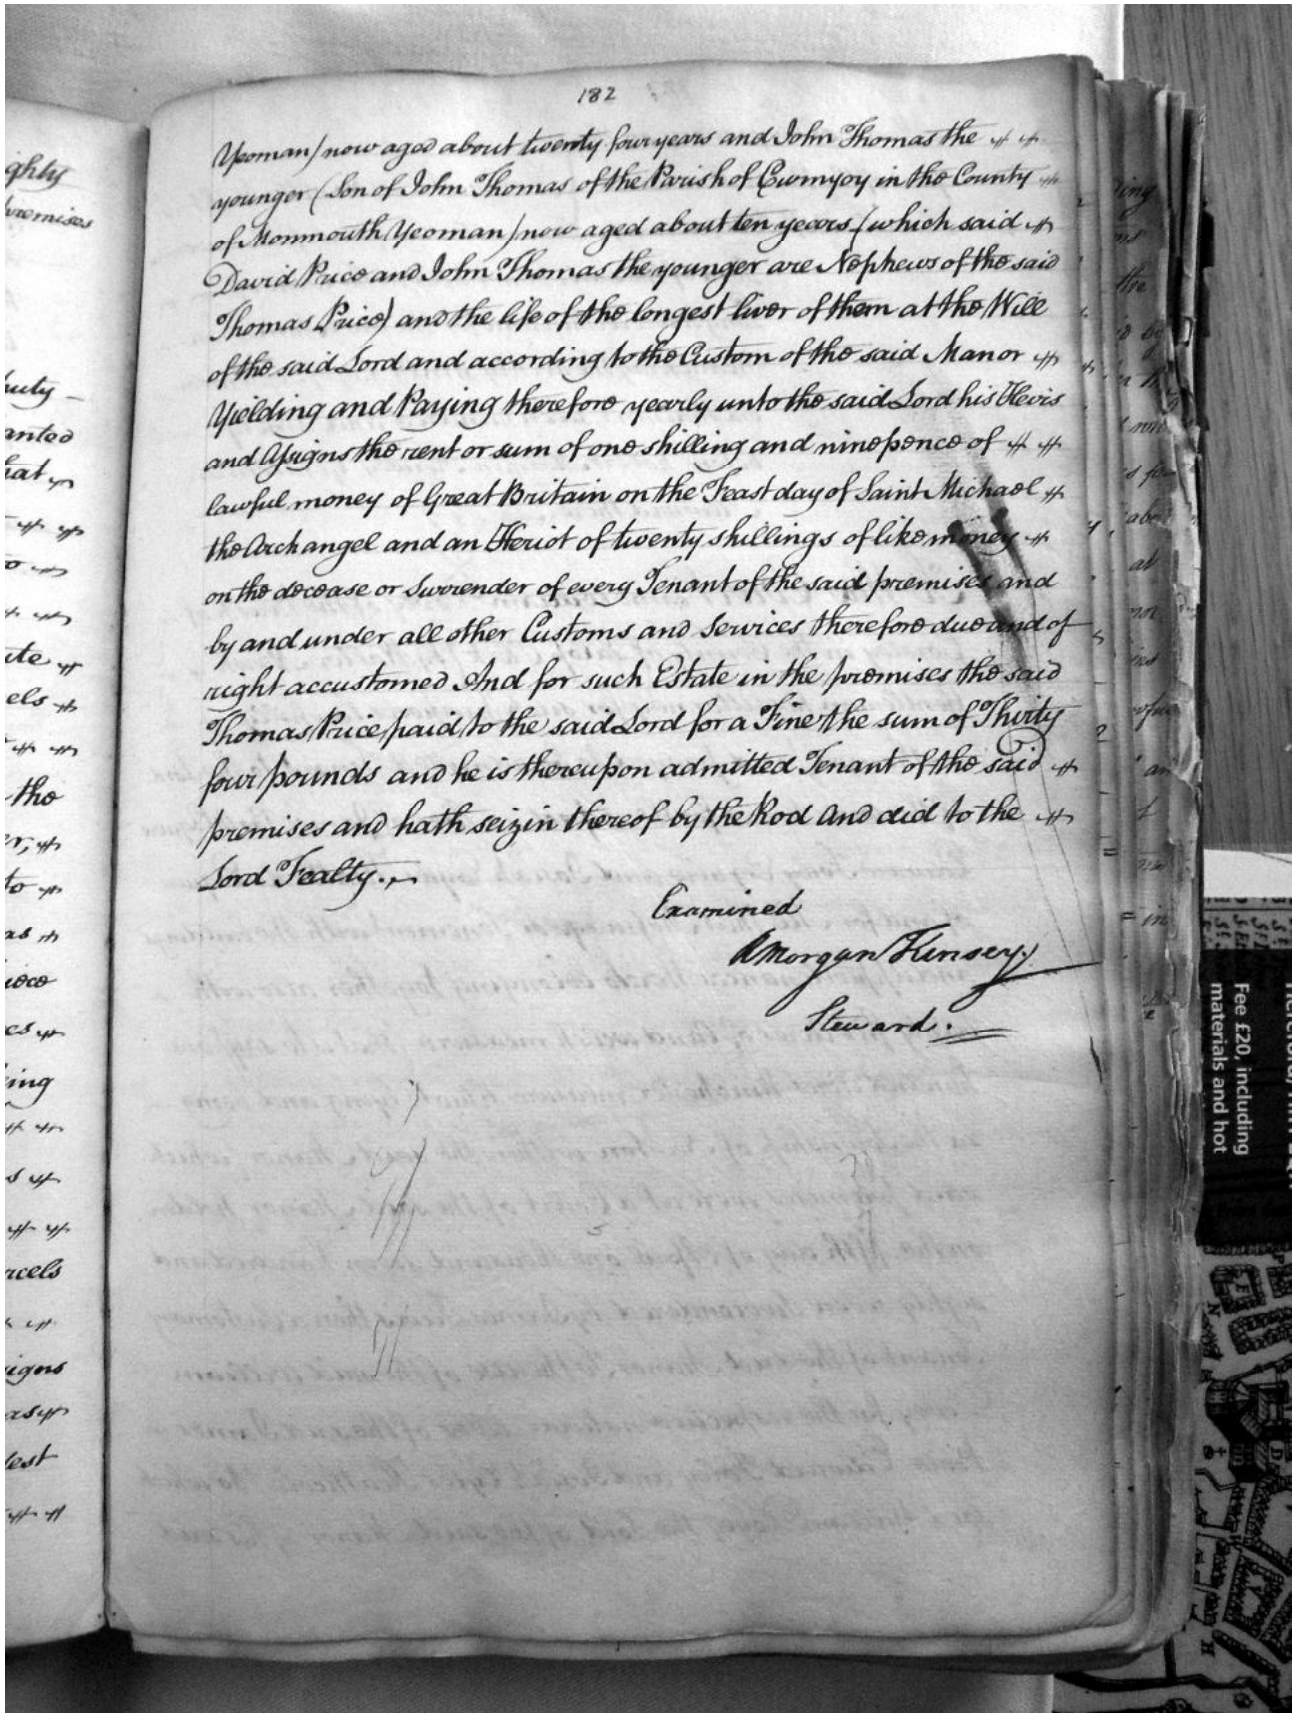 182
Yeoman) now aged about twenty four years and John Thomas the
younger (Son of John Thomas of the Parish of Cwmyoy in the County
of Monmouth Yeoman) now aged about ten years (which said
David Price and John Thomas the younger are Nephews of the said
Thomas Price) and the life of the longest liver of them at the Will
of the said Lord and according to the Custom of the said Manor
Yielding and Paying therefore yearly unto the said Lord his Heirs
and Assigns the rent or sum of one shilling and ninepence of
lawful money of Great Britain on the Feast day of Saint Michael
the Archangel and an Heriot of twenty shillings of like money
on the decease or Surrender of every Tenant of the said premises and
by and under all other Customs and Services therefore due and of
right accustomed And for such Estate in the premises the said
Thomas Price paid to the said Lord for a Fine the sum of Thirty
four pounds and he is thereupon admitted Tenant of the said
premises and hath seizin thereof by the Rod and did to the
Lord Fealty.
Examined
Morgan Kinsey
Steward.
ghty
premises
anted
els
the
to
as
ing
rcels
igns
Fee £20, including
materials and hot